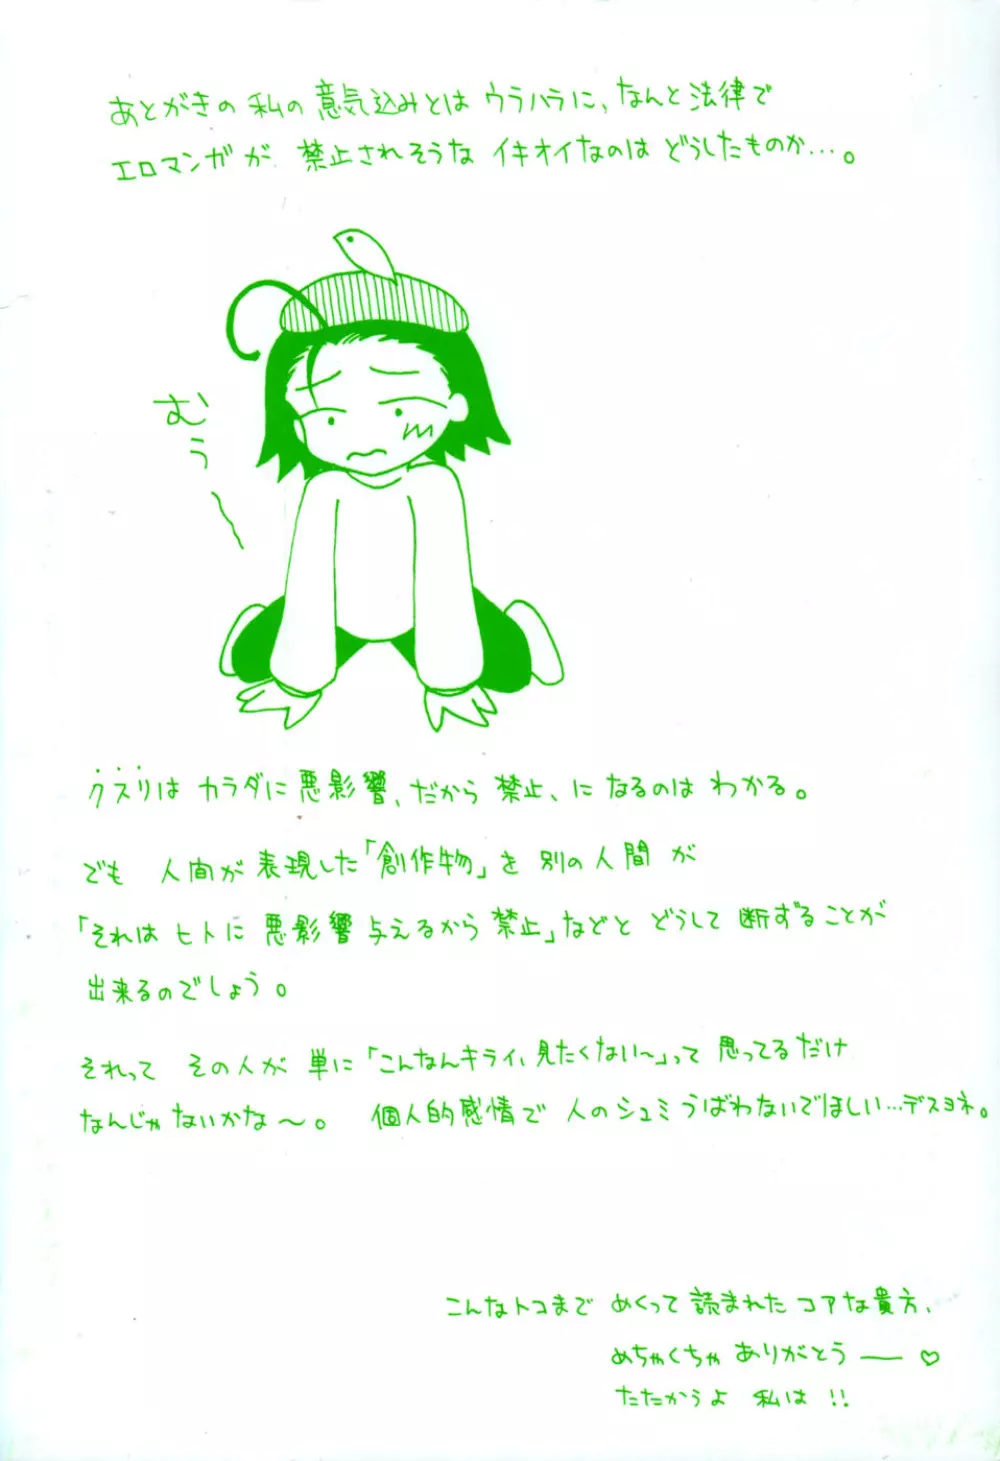 あとがきの私の意気込みとはウラハラに、なんと法律で
エロマンガが、禁止されそうなイキオイなのはどうしたものか…。
むぅ〜
クスリはカラダに悪影響、だから禁止、になるのはわかる。
でも人間が表現した「創作物」を別の人間が
「それはヒトに悪影響与えるから禁止」などとどうして断ずることが
出来るのでしょう。
それってその人が単に「こんなんキライ、見たくない〜」って思ってるだけ
なんじゃないかな〜。個人的感情で人のシュミうばわないでほしい…デスヨネ。
こんなトコまでめくって読まれたコアな貴方、
めちゃくちゃありがとう―♡
たたかうよ私は!!